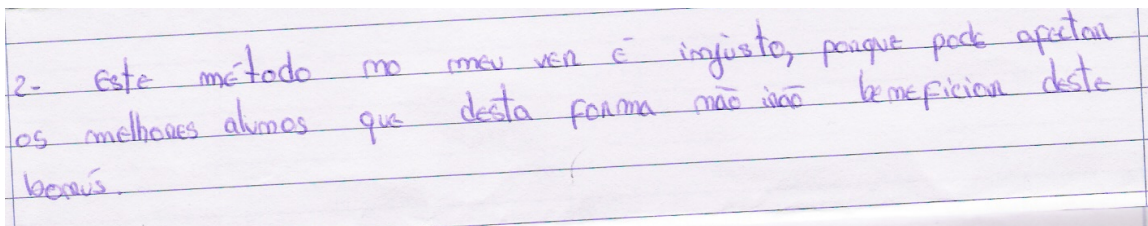 2- Este método no meu ver é injusto, porque pode afectar
os melhores alunos que desta forma não irão beneficiar deste
bonús.